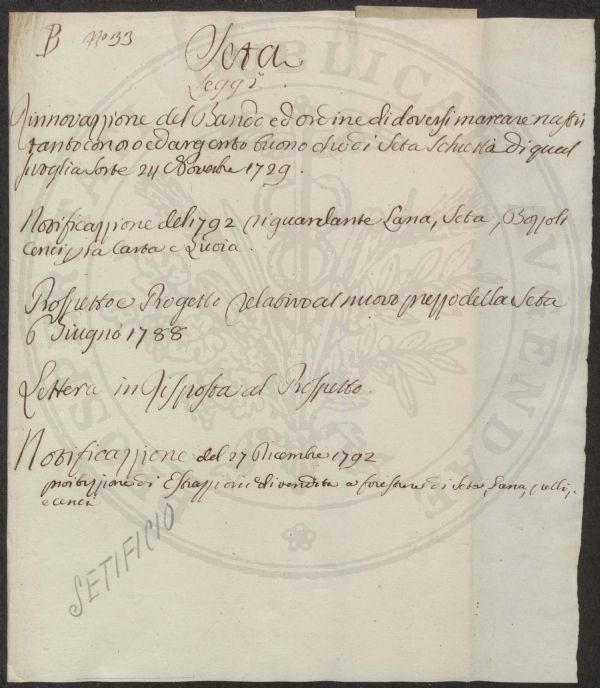 B No 33
Seta
Leggi
Rinnovazzione del Bando ed ordine di doversi marcare nastri
tanto con oro ed argento buono che di Seta Schietta di qual
sivoglia sorte 24 Novembre 1729.
Notificazzione del 1792 riguardante Lana, Seta, Bozzoli
Cenci p la Carta e
Prospetto e Progetto relativo al nuovo prezzo della Seta
6 Giugno 1788
Lettera in Risposta al Prospetto.
Notificazzione del 27 Dicembre 1792
proibizzione di Estrazzione di vendita a forestieri di Seta, Lana, pelli,
e cenci
SETIFICIO